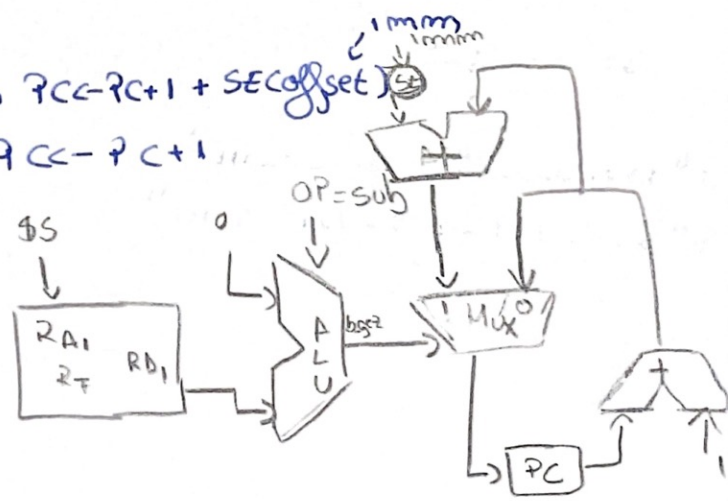 imm
imm
PC<-PC+1 + SE(offset)
SE
PC<-PC+1
+
OP=sub
$S
0
RA1
RF
RD1
ALU
bgez
1 Mux 0
+
PC
1